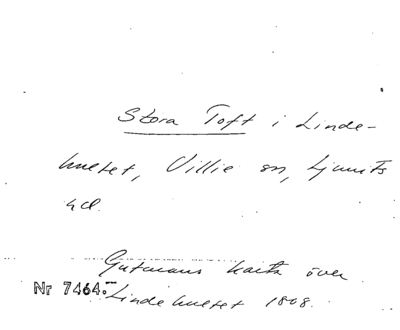 Stora Toft i Linde-
huset, Villie sn, Ljunits
hd.
Gutmans karta över
Nr 7464. Lindehuset 1808.